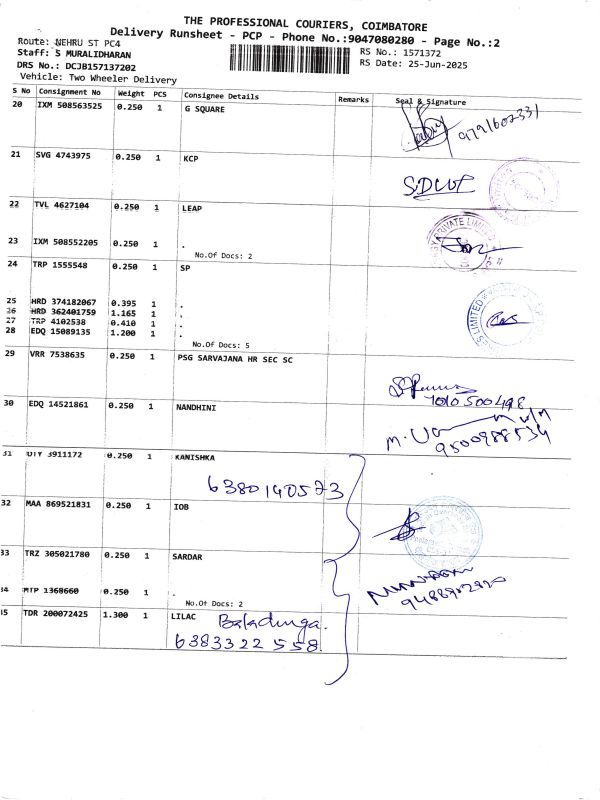 THE PROFESSIONAL COURIERS, COIMBATORE
Delivery Runsheet - PCP - Phone No.:9047080280 - Page No.:2
Route: NEHRU ST PC4
Staff: S MURALIDHARAN
RS No.: 1571372
DRS No.: DCJB157137202
RS Date: 25-Jun-2025
Vehicle: Two Wheeler Delivery
S No Consignment No Weight PCS Consignee Details Remarks Seal & Signature
20 IXM 508563525 0.250 1 G SQUARE
9791602331
21 SVG 4743975 0.250 1 KCP
22 TVL 4627104 0.250 1 LEAP
23 IXM 508552205 0.250 1 .
No.Of Docs: 2
24 TRP 1555548 0.250 1 SP
25 HRD 374182067 0.395 1 .
26 HRD 362401759 1.165 1 .
27 TRP 4102538 0.410 1 .
28 EDQ 15089135 1.200 1 .
No.Of Docs: 5
29 VRR 7538635 0.250 1 PSG SARVAJANA HR SEC SC
7010500498
30 EDQ 14521861 0.250 1 NANDHINI
9500988534
31 DIY 3911172 0.250 1 KANISHKA
6380140573
32 MAA 869521831 0.250 1 IOB
33 TRZ 305021780 0.250 1 SARDAR
34 MTP 1368660 0.250 1 .
No.Of Docs: 2
35 TDR 200072425 1.300 1 LILAC
Baladurga.
6383322558